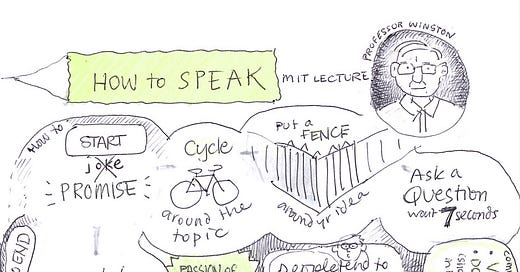 HOW to SPEAK
MIT LECTURE
PROFESSOR WINSTON
HOW TO
START
joke
PROMISE
Cycle
around the
topic
put a
FENCE
around yr idea
Ask a
Question
wait 7 seconds
END
PASSION OF
people tend to